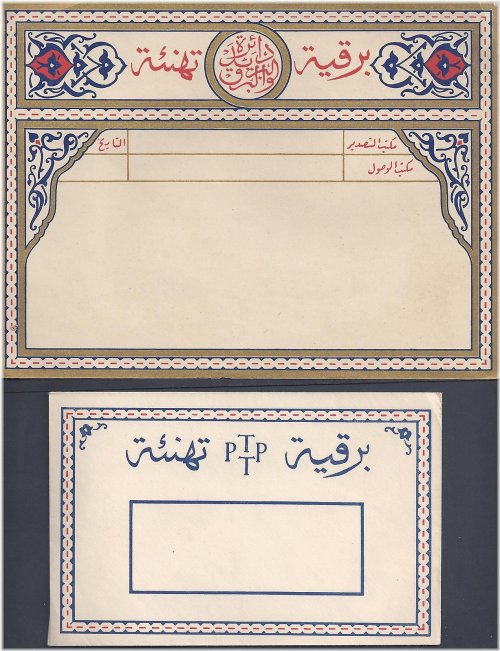 برقية دائرة البريد والبرق تهنئة
مكتب التصدير التاريخ
مكتب الوصول
برقية PTTP تهنئة